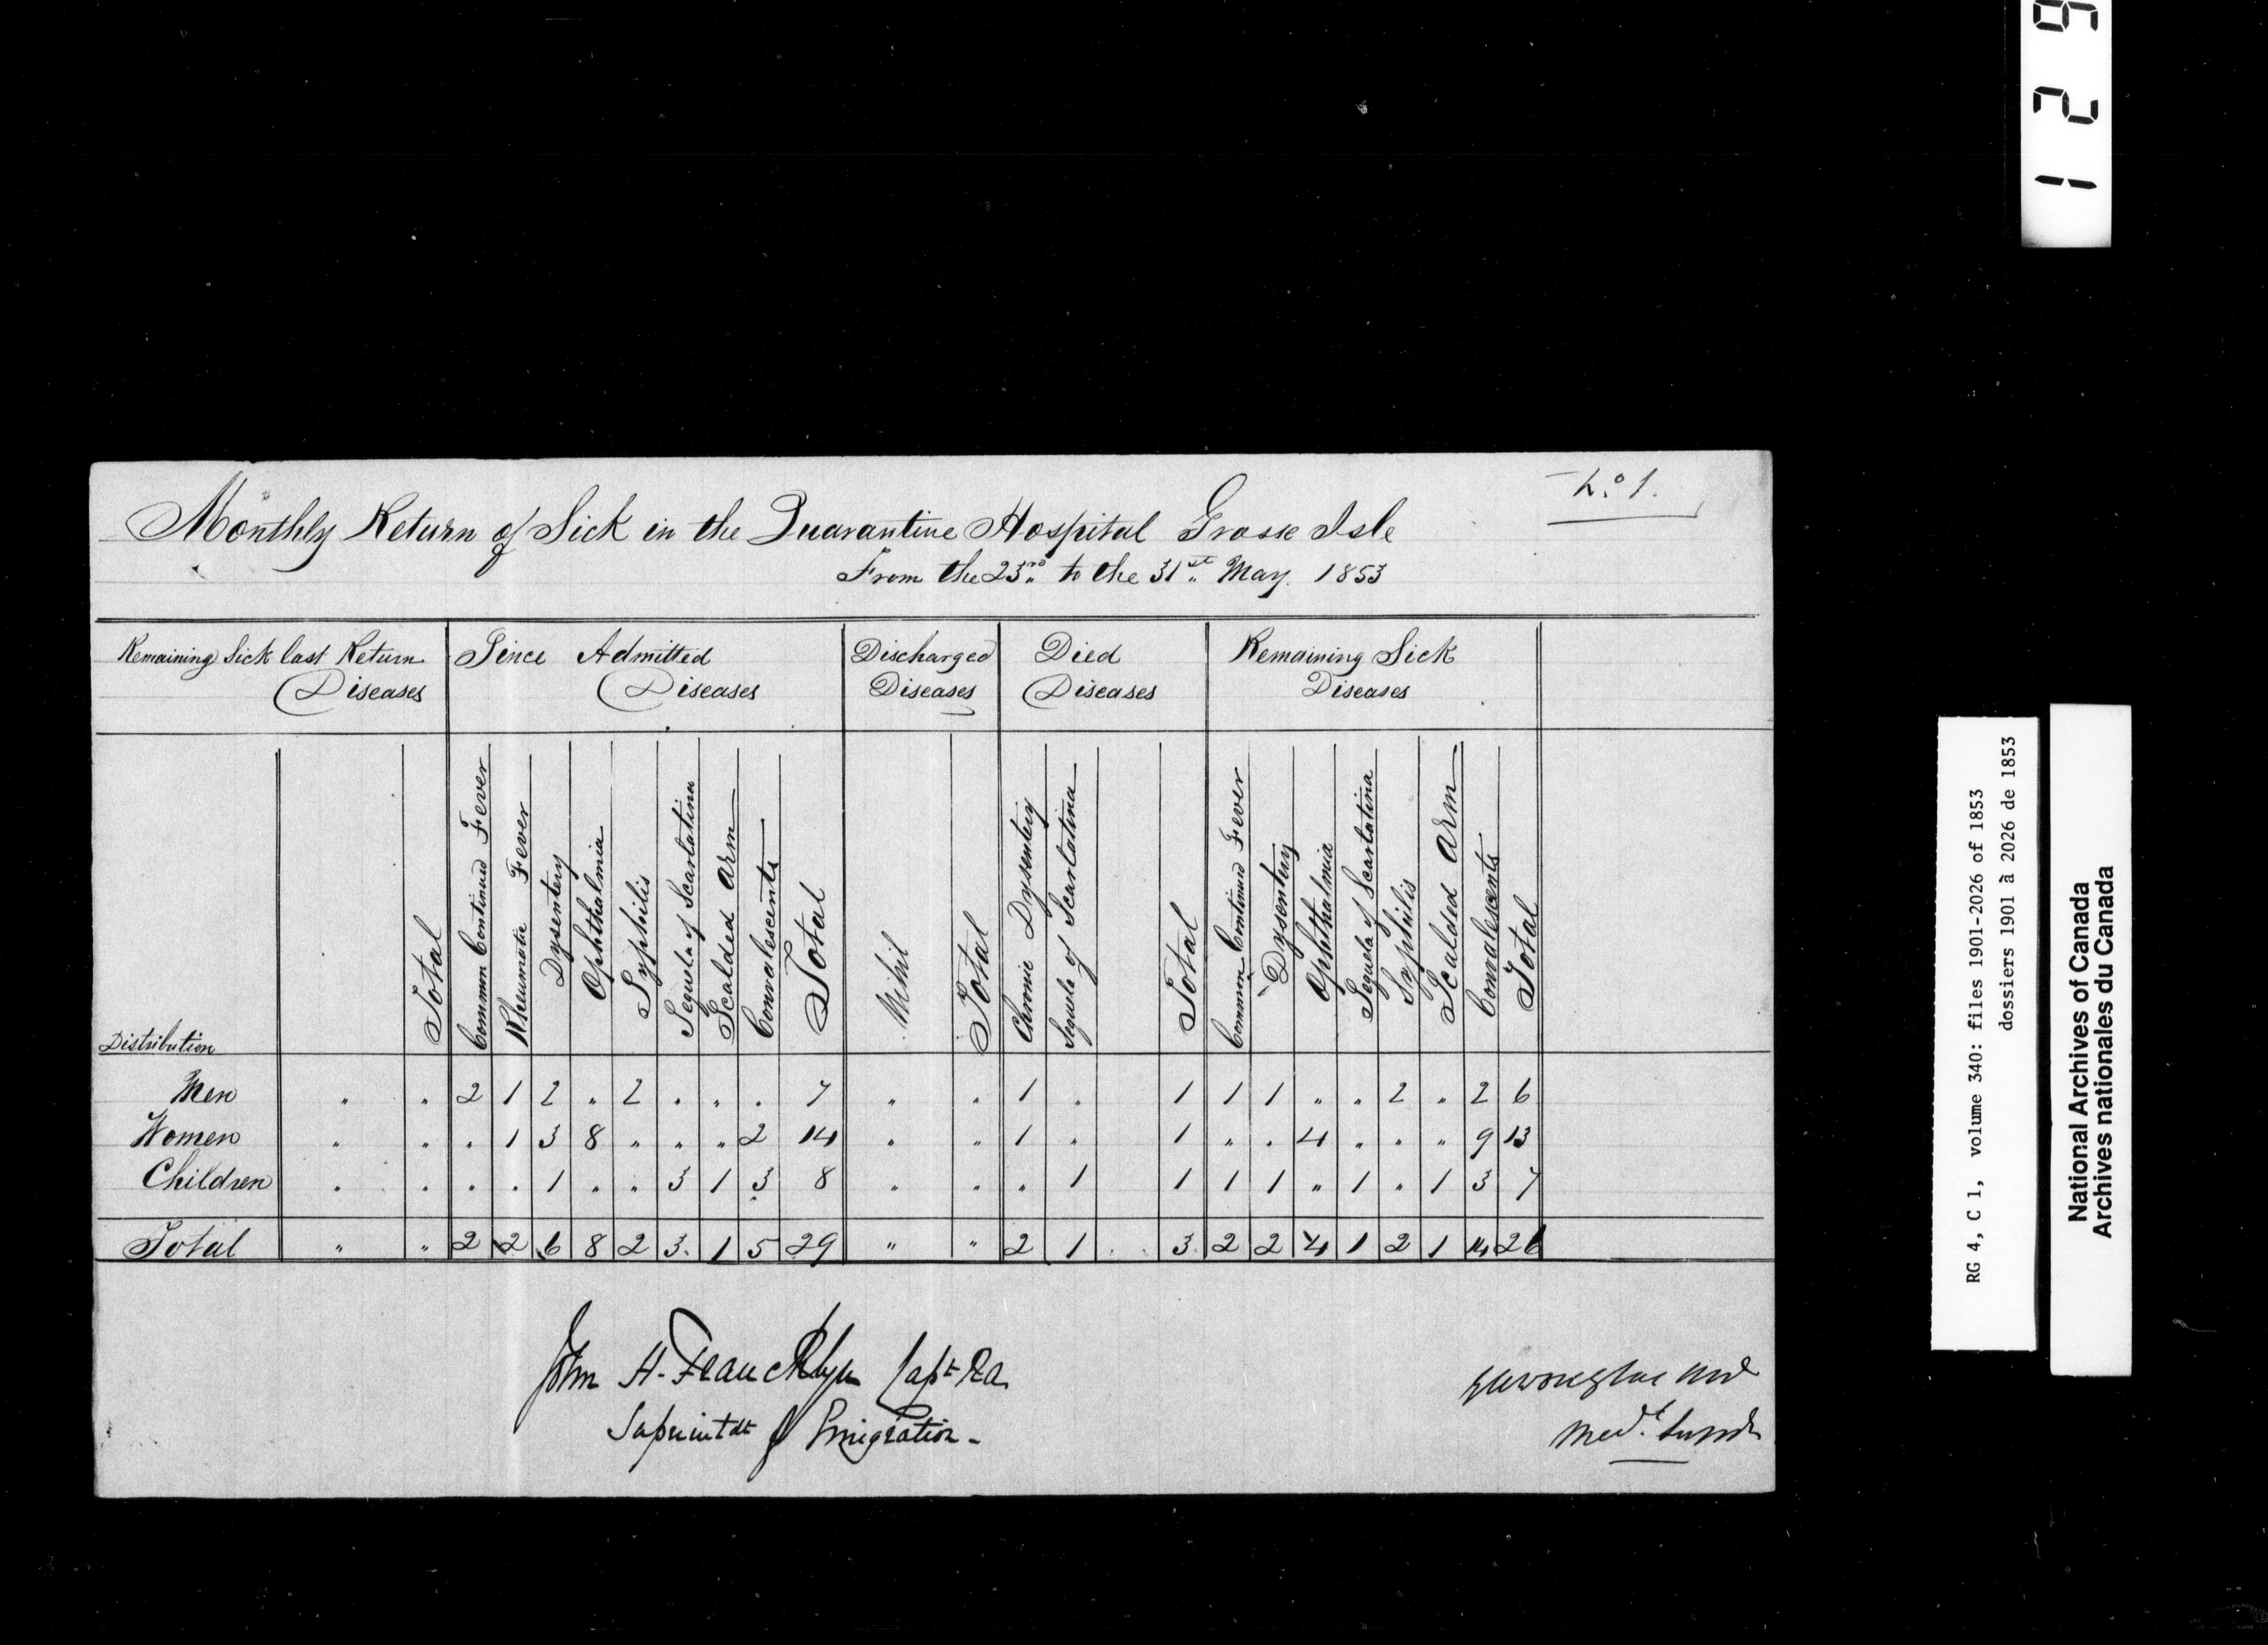 129
No. 1.
Monthly Return of Sick in the Quarantine Hospital Grosse Isle
From the 23rd to the 31st May. 1853
Remaining Sick last Return Diseases
Since Admitted Diseases
Discharged Diseases
Died Diseases
Remaining Sick Diseases
Distribution | | Total | Common Continued Fever | Rheumatic Fever | Dysentery | Ophthalmia | Syphilis | Sequela of Scarlatina | Scalded Arm | Convalescents | Total | Nihil | Total | Chronic Dysentery | Sequela of Scarlatina | | Total | Common Continued Fever | Dysentery | Ophthalmia | Sequela of Scarlatina | Syphilis | Scalded Arm | Convalescents | Total
Men " " 2 1 2 " 2 " " " 7 " " 1 " 1 1 1 " " 2 " 2 6
Women " " " 1 3 8 " " " 2 14 " " 1 " 1 " " 4 " " " 9 13
Children " " " " 1 " " 3 1 3 8 " " " 1 1 1 1 " 1 " 1 3 7
Total " " 2 2 6 8 2 3. 1 5 29 " " 2 1 3 2 2 4 1 2 1 14 26
John H. Francklyn Capt Ra.
Suprintdt of Emigration -
Med. Supdt
RG 4, C 1, volume 340: files 1901-2026 of 1853
dossiers 1901 à 2026 de 1853
National Archives of Canada
Archives nationales du Canada